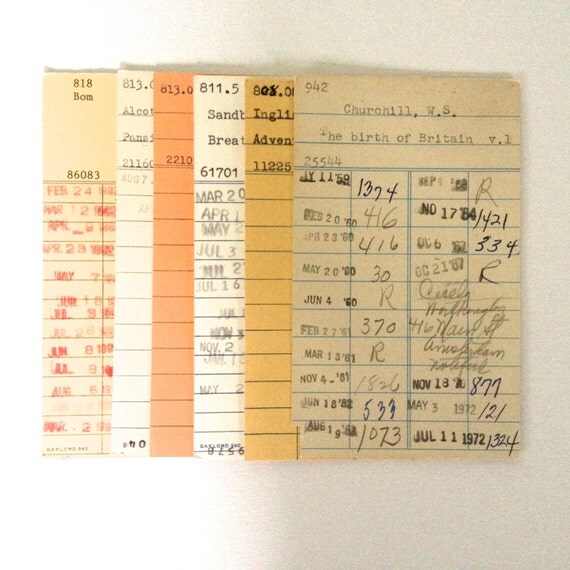 818
Bom
86083
FEB 24
MAR 12
APR 23
MAY 7
JUN 8
AUG 6
MAR 2
GAYLORD 340
813.0
Alcot
Pansi
21160
AUG 7
813.
2210
811.5
Sandb
Breat
61701
MAR 20
APR 1
MAY
JUL 3
JUL 2
JUL 16
NOV
NOV 2
MAY 2
GAYLORD 340
808.00
Ingli
Adven
11225
942
Churchill, W.S.
The birth of Britain v.1
25544
11 '59 1374
FEB 20 '60 416
APR 23 '60 416
MAY 20 '60 30
JUN 4 '60 R
FEB 27 '61 370
MAR 13 '61 R
NOV 4 - '61 1826
JUN 18 '62 533
AUG 19 1073
SEP R
NO 17 '64 1421
OC 6 334
OC 21 '67 R
416 Main St
Amsterdam
NOV 18 877
MAY 3 1972 121
JUL 11 1972 1324